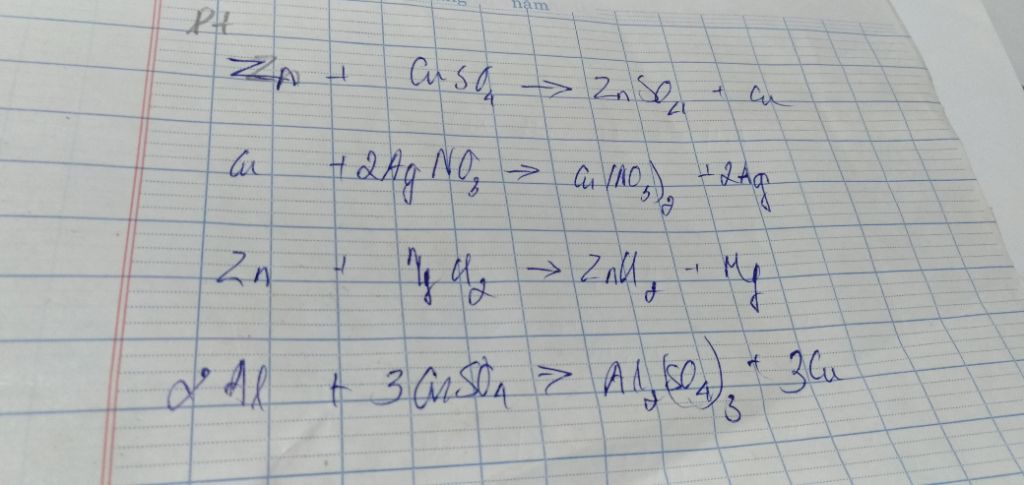 năm
Pt
Zn + CuSO₄ → ZnSO₄ + Cu
Cu + 2AgNO₃ → Cu(NO₃)₂ + 2Ag
Zn + MgCl₂ → ZnCl₂ + Mg
2Al + 3CuSO₄ → Al₂(SO₄)₃ + 3Cu